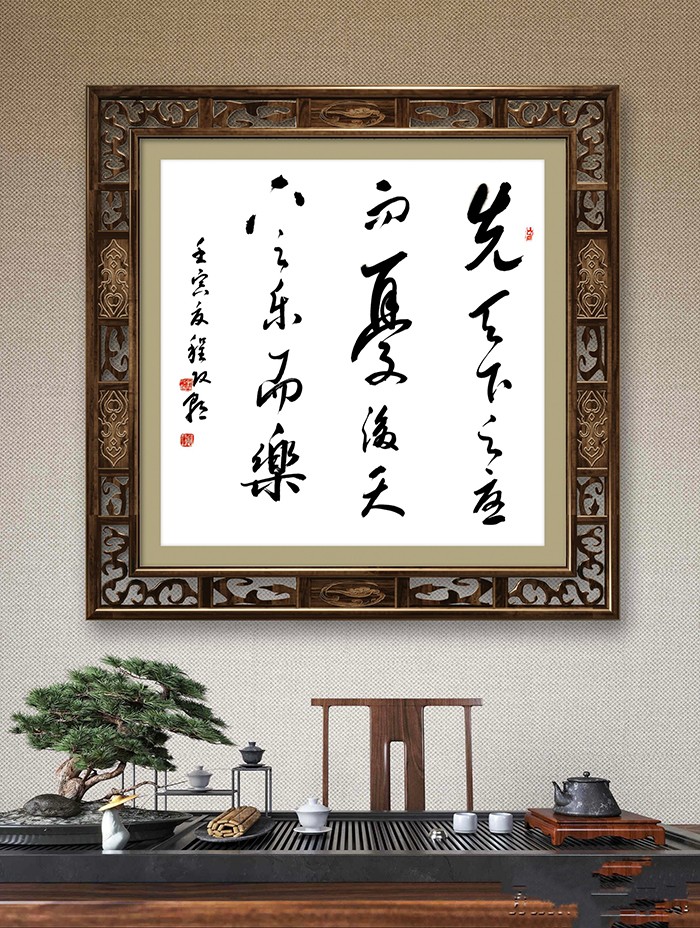 先天下之憂
而憂後天
下之乐而樂
壬寅夏程